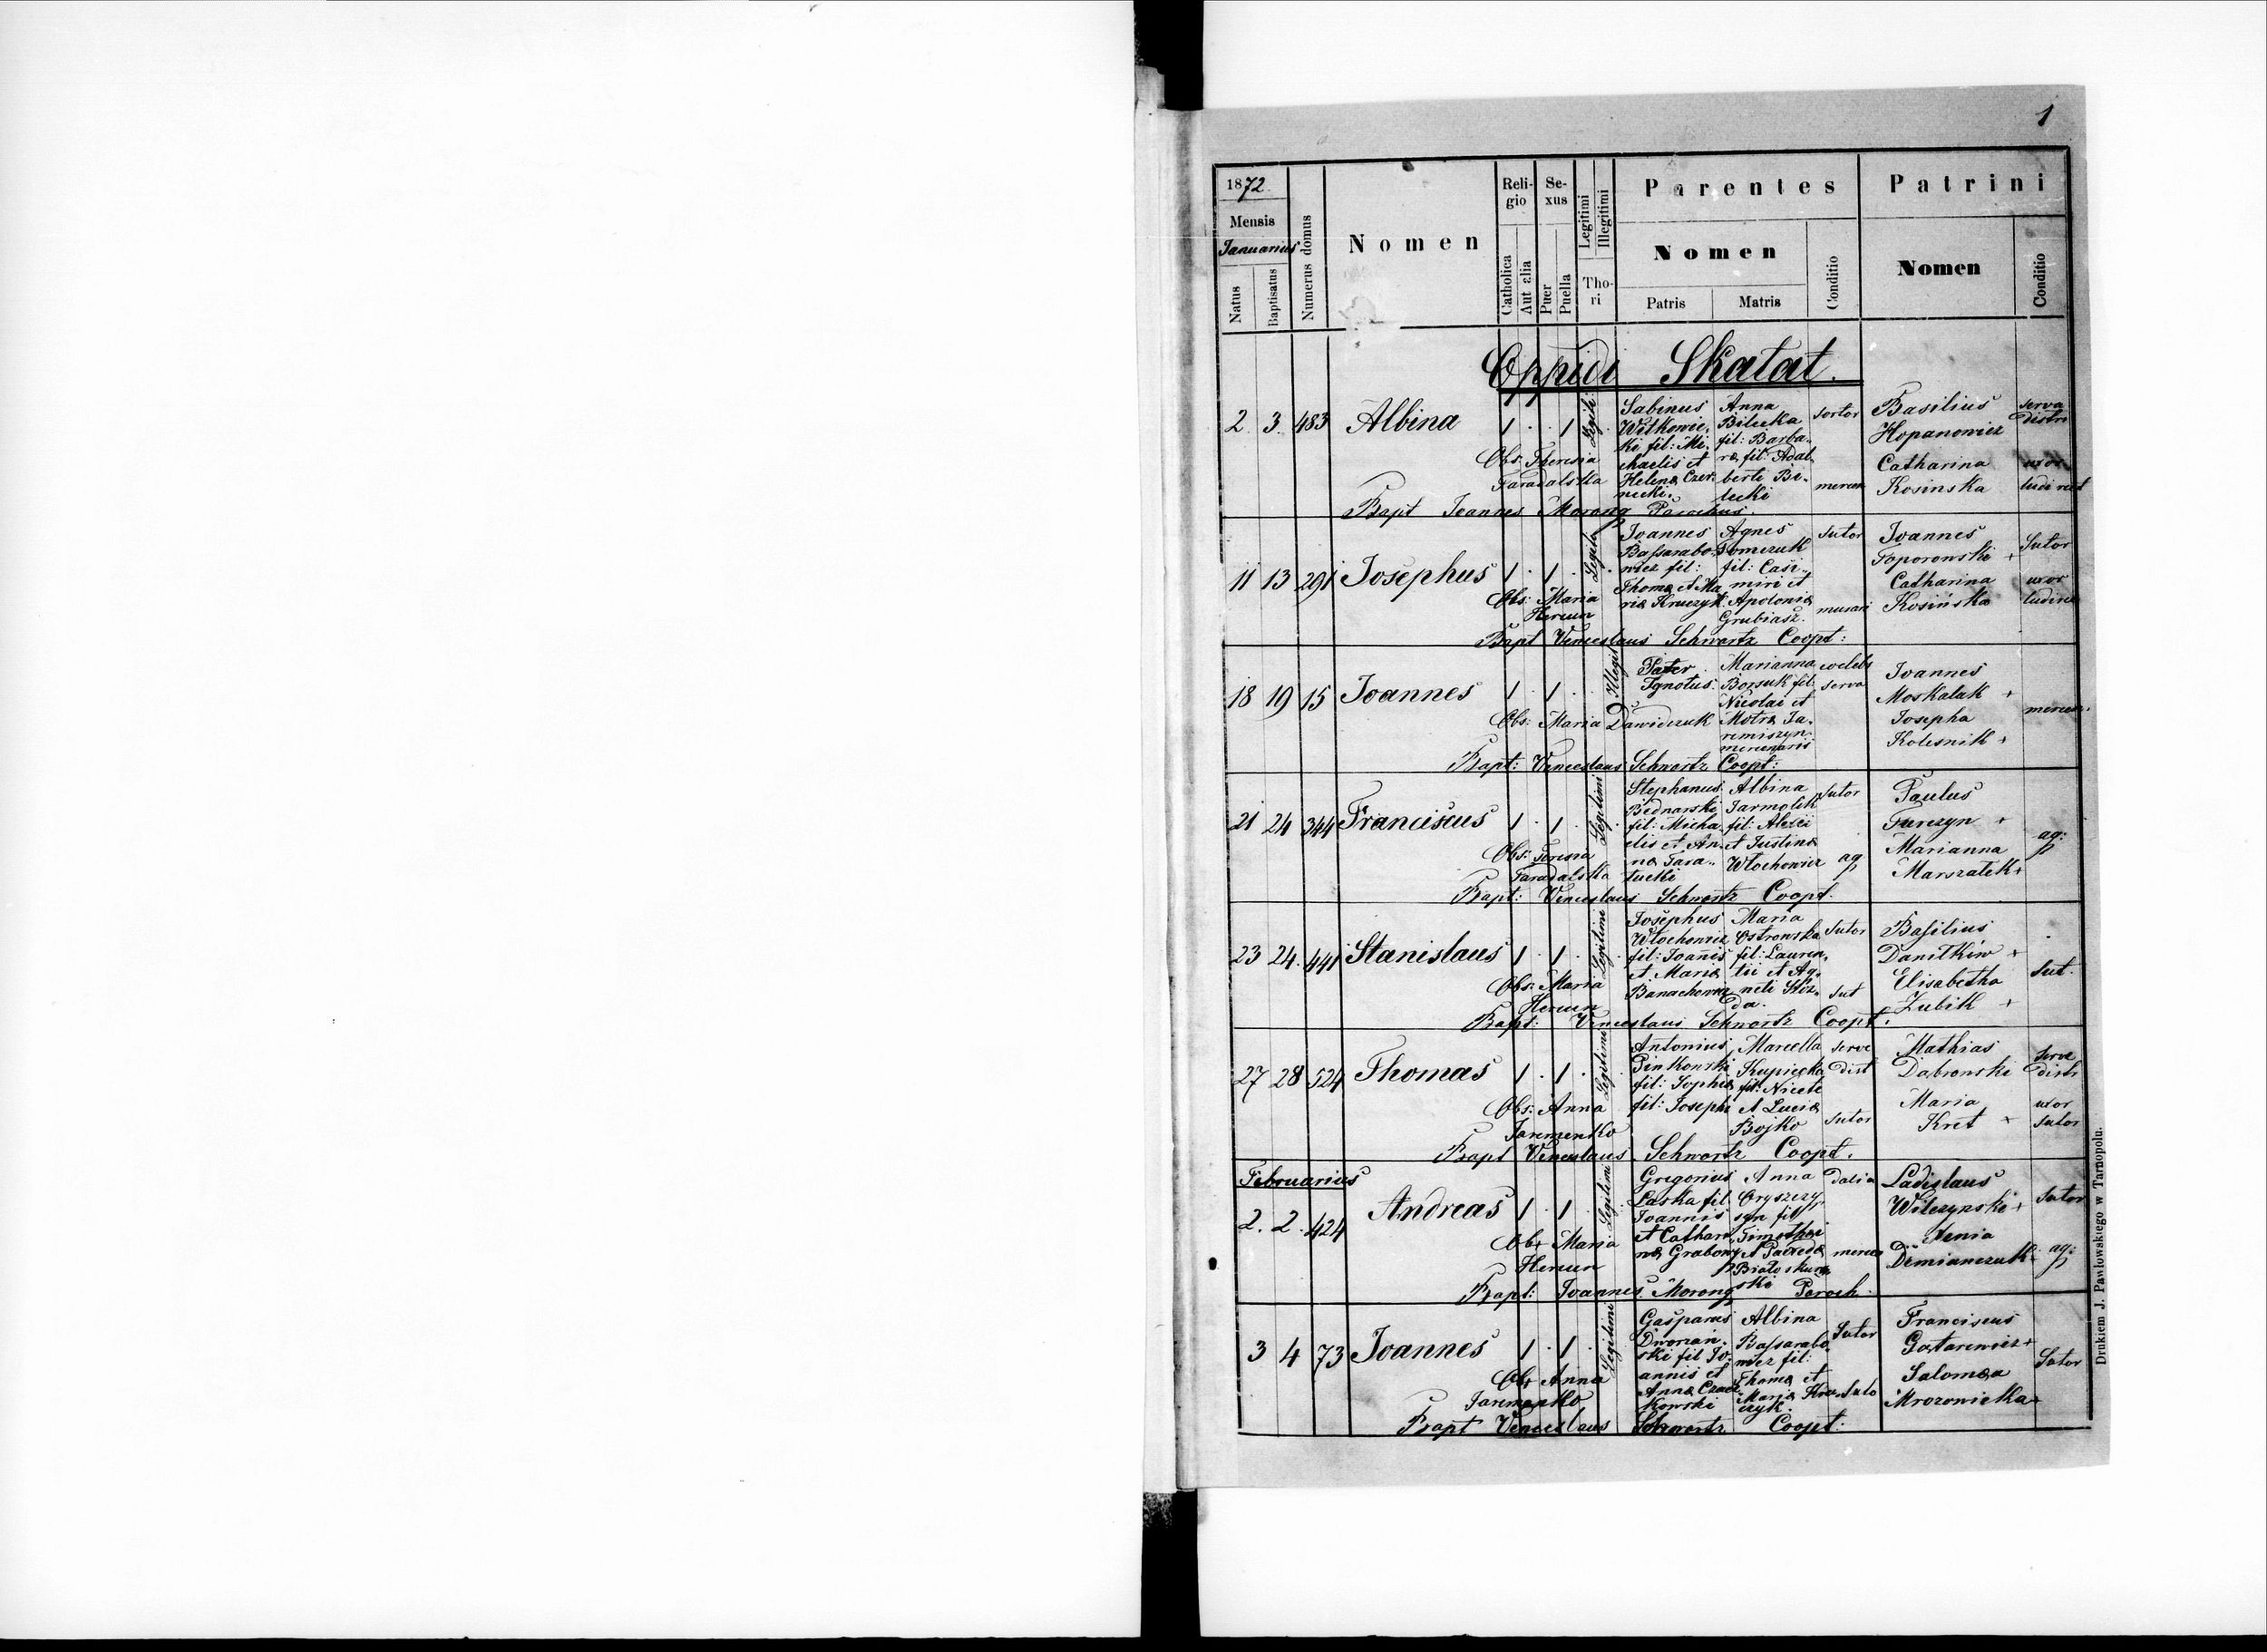 1
1872
Mensis
Januarius
Natus
Baptisatus
Numerus domus
Nomen
Religio
Catholica
Aut alia
Sexus
Puer
Puella
Legitimi
Illegitimi
Thori
Parentes
Nomen
Patris
Matris
Conditio
Patrini
Nomen
Conditio
Oppidi Skałat.
2. 3. 483 Albina 1 . . 1 Legiti
Sabinus
Witkowic,
ki fil: Mi,
chaelis et
Helenæ Czer,
necki.
Anna
Bilecka
fil: Barba,
ræ fil: Adal,
berti Bi,
lecki
sortor
mercen
Basilius
Hopanowicz
Catharina
Kosinska
serva
distri
uxor
Obs: Theresia
Faradalska
Bapt Joannes Morong Parochus.
11 13 291 Josephus 1 . 1 . Legiti
Joannes
Bassarabo,
wicz fil:
Thomæ et Ma
riæ Kruczyk
Agnes
Tomczuk
fil: Casi,
miri et
Apoloniæ
Grubiasz.
sutor
Joannes
Toporowski +
Catharina
Kosińska
Sutor
uxor
Obs: Maria
Hereun
Bapt Venceslaus Schwartz Coopt:
18 19 15 Joannes 1 . 1 . Illegit
Pater
Ignotus.
Marianna
Borsuk fil:
Nicolai et
Motræ Ja,
remiszyn
mercenarii
coelebs
serva
Joannes
Moskaluk +
Josepha
Kolesnik +
mercen.
Obs: Maria Dawidczuk
Bapt: Venceslaus Schwartz Coopt:
21 24 344 Franciscus 1 . 1 . Legitimi
Stephanus
Bednarski
fil: Micha,
elis et An,
næ Tara,
tucki
Albina
Jarmolik
fil: Alexii
et Justinæ
Włochowicz
sutor
ag
Paulus
Furczyn +
Marianna
Marszałek +
ag:
Obs: Teresia
Faradalska
Bapt: Venceslaus Schwartz Coopt.
23 24. 441 Stanislaus 1 . 1 . Legitimi
Josephus
Włochowicz
fil: Joannis
et Mariæ
Maria
Ostrowska
fil: Lauren,
tii et Ag,
sutor
sut
Basilius
Daniłków +
Elisabetha
Zubik +
Sut.
Obs: Maria
Hereun
Bapt: Venceslaus Schwartz Coopt.
27 28 524 Thomas 1 . 1 . Legitimi
Antonius
Pinkowski
fil: Sophiæ
fil: Josephi
Marcella
Kupiecka
fil: Nicete
et Luciæ
Bojko
serve
dist
sutor
Mathias
Dąbrowski
Maria
Kret +
serve
distr
uxor
sutor
Obs: Anna
Jaremenko
Bapt Venceslaus Schwartz Coopt.
Februarius
2. 2. 424 Andreas 1 . 1 . Legitimi
Gregorius
Laska fil
Joannis
et Cathari,
næ Grabowy
Anna
Oryszczy,
syn fil:
Timothei
Ladislaus
Wilczynski +
Xenia
Demianczuk +
Sutor
ag:
Obs Maria
Hereun
Bapt: Joannes Morong Paroch.
3 4 73 Joannes 1 . 1 . Legitimi
Gasparus
Dworzań,
ski fil Jo,
annis et
Annæ
kowski
Albina
Bassarabo,
wicz fil:
Thomæ et
Mariæ Kru,
czyk.
Sutor
Suto
Franciscus
Salomea
Mrozowicka +
Sutor
Obs Anna
Jaremenko
Bapt Venceslaus Schwartz Coopt:
Drukiem J. Pawłowskiego w Tarnopolu.